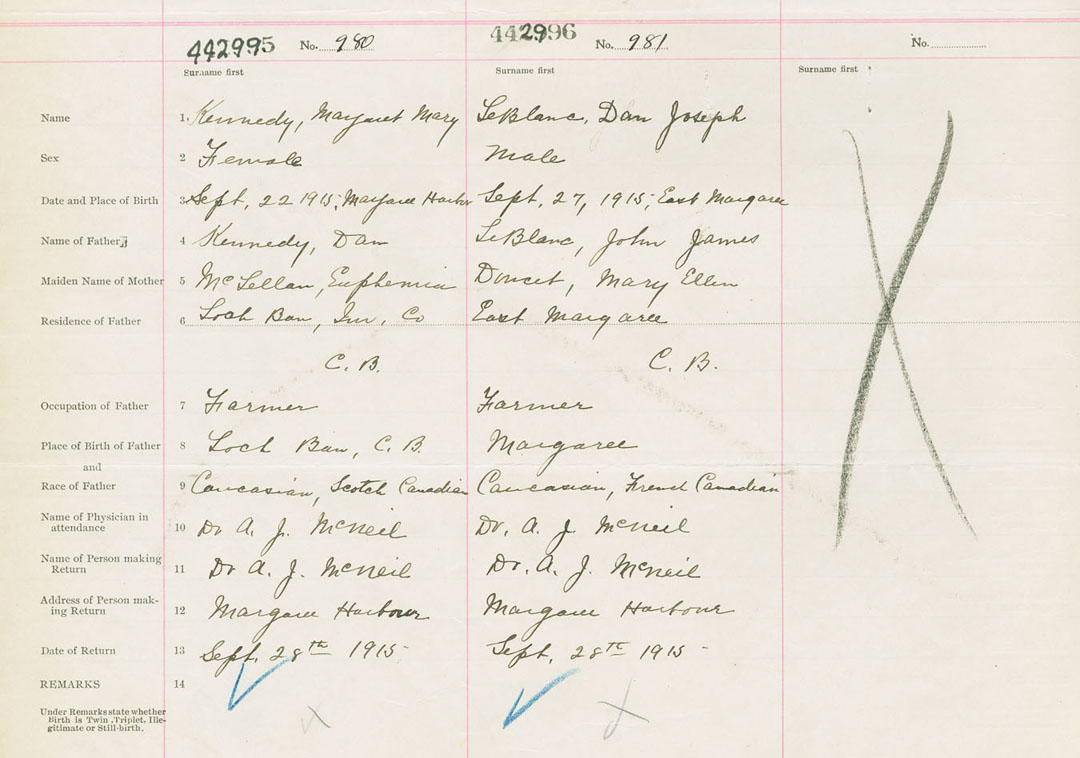 442995 No. 980 442996 No. 981 No.
Surname first Surname first Surname first
Name 1. Kennedy, Margaret Mary LeBlanc, Dan Joseph
Sex 2 Female Male
Date and Place of Birth 3 Sept, 22 1915, Margaree Harbor Sept, 27, 1915, East Margaree
Name of Father 4 Kennedy, Dan LeBlanc, John James
Maiden Name of Mother 5 McLellan, Euphemia Doucet, Mary Ellen
Residence of Father 6 Loch Ban, Inv. Co East Margaree
C. B. C. B.
Occupation of Father 7 Farmer Farmer
Place of Birth of Father 8 Loch Ban, C. B. Margaree
and
Race of Father 9 Caucasian, Scotch Canadian Caucasian, French Canadian
Name of Physician in
attendance 10 Dr A. J. McNeil Dr. A. J. McNeil
Name of Person making
Return 11 Dr A. J. McNeil Dr. A. J. McNeil
Address of Person mak-
ing Return 12 Margaree Harbour Margaree Harbour
Date of Return 13 Sept. 28th 1915 Sept. 28th 1915
REMARKS 14
Under Remarks state whether
Birth is Twin, Triplet, Ille-
gitimate or Still-birth.